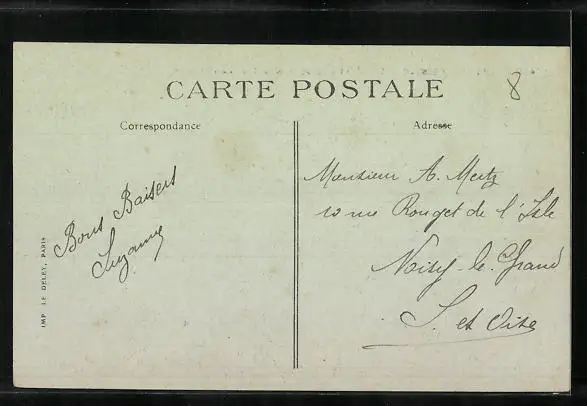 CARTE POSTALE
8
Correspondance
Adresse
Bons Baisers
Suzanne
Monsieur A. Mertz
10 rue Rouget de l'Isle
Noisy-le-Grand
S. et Oise
IMP LE DELEY, PARIS